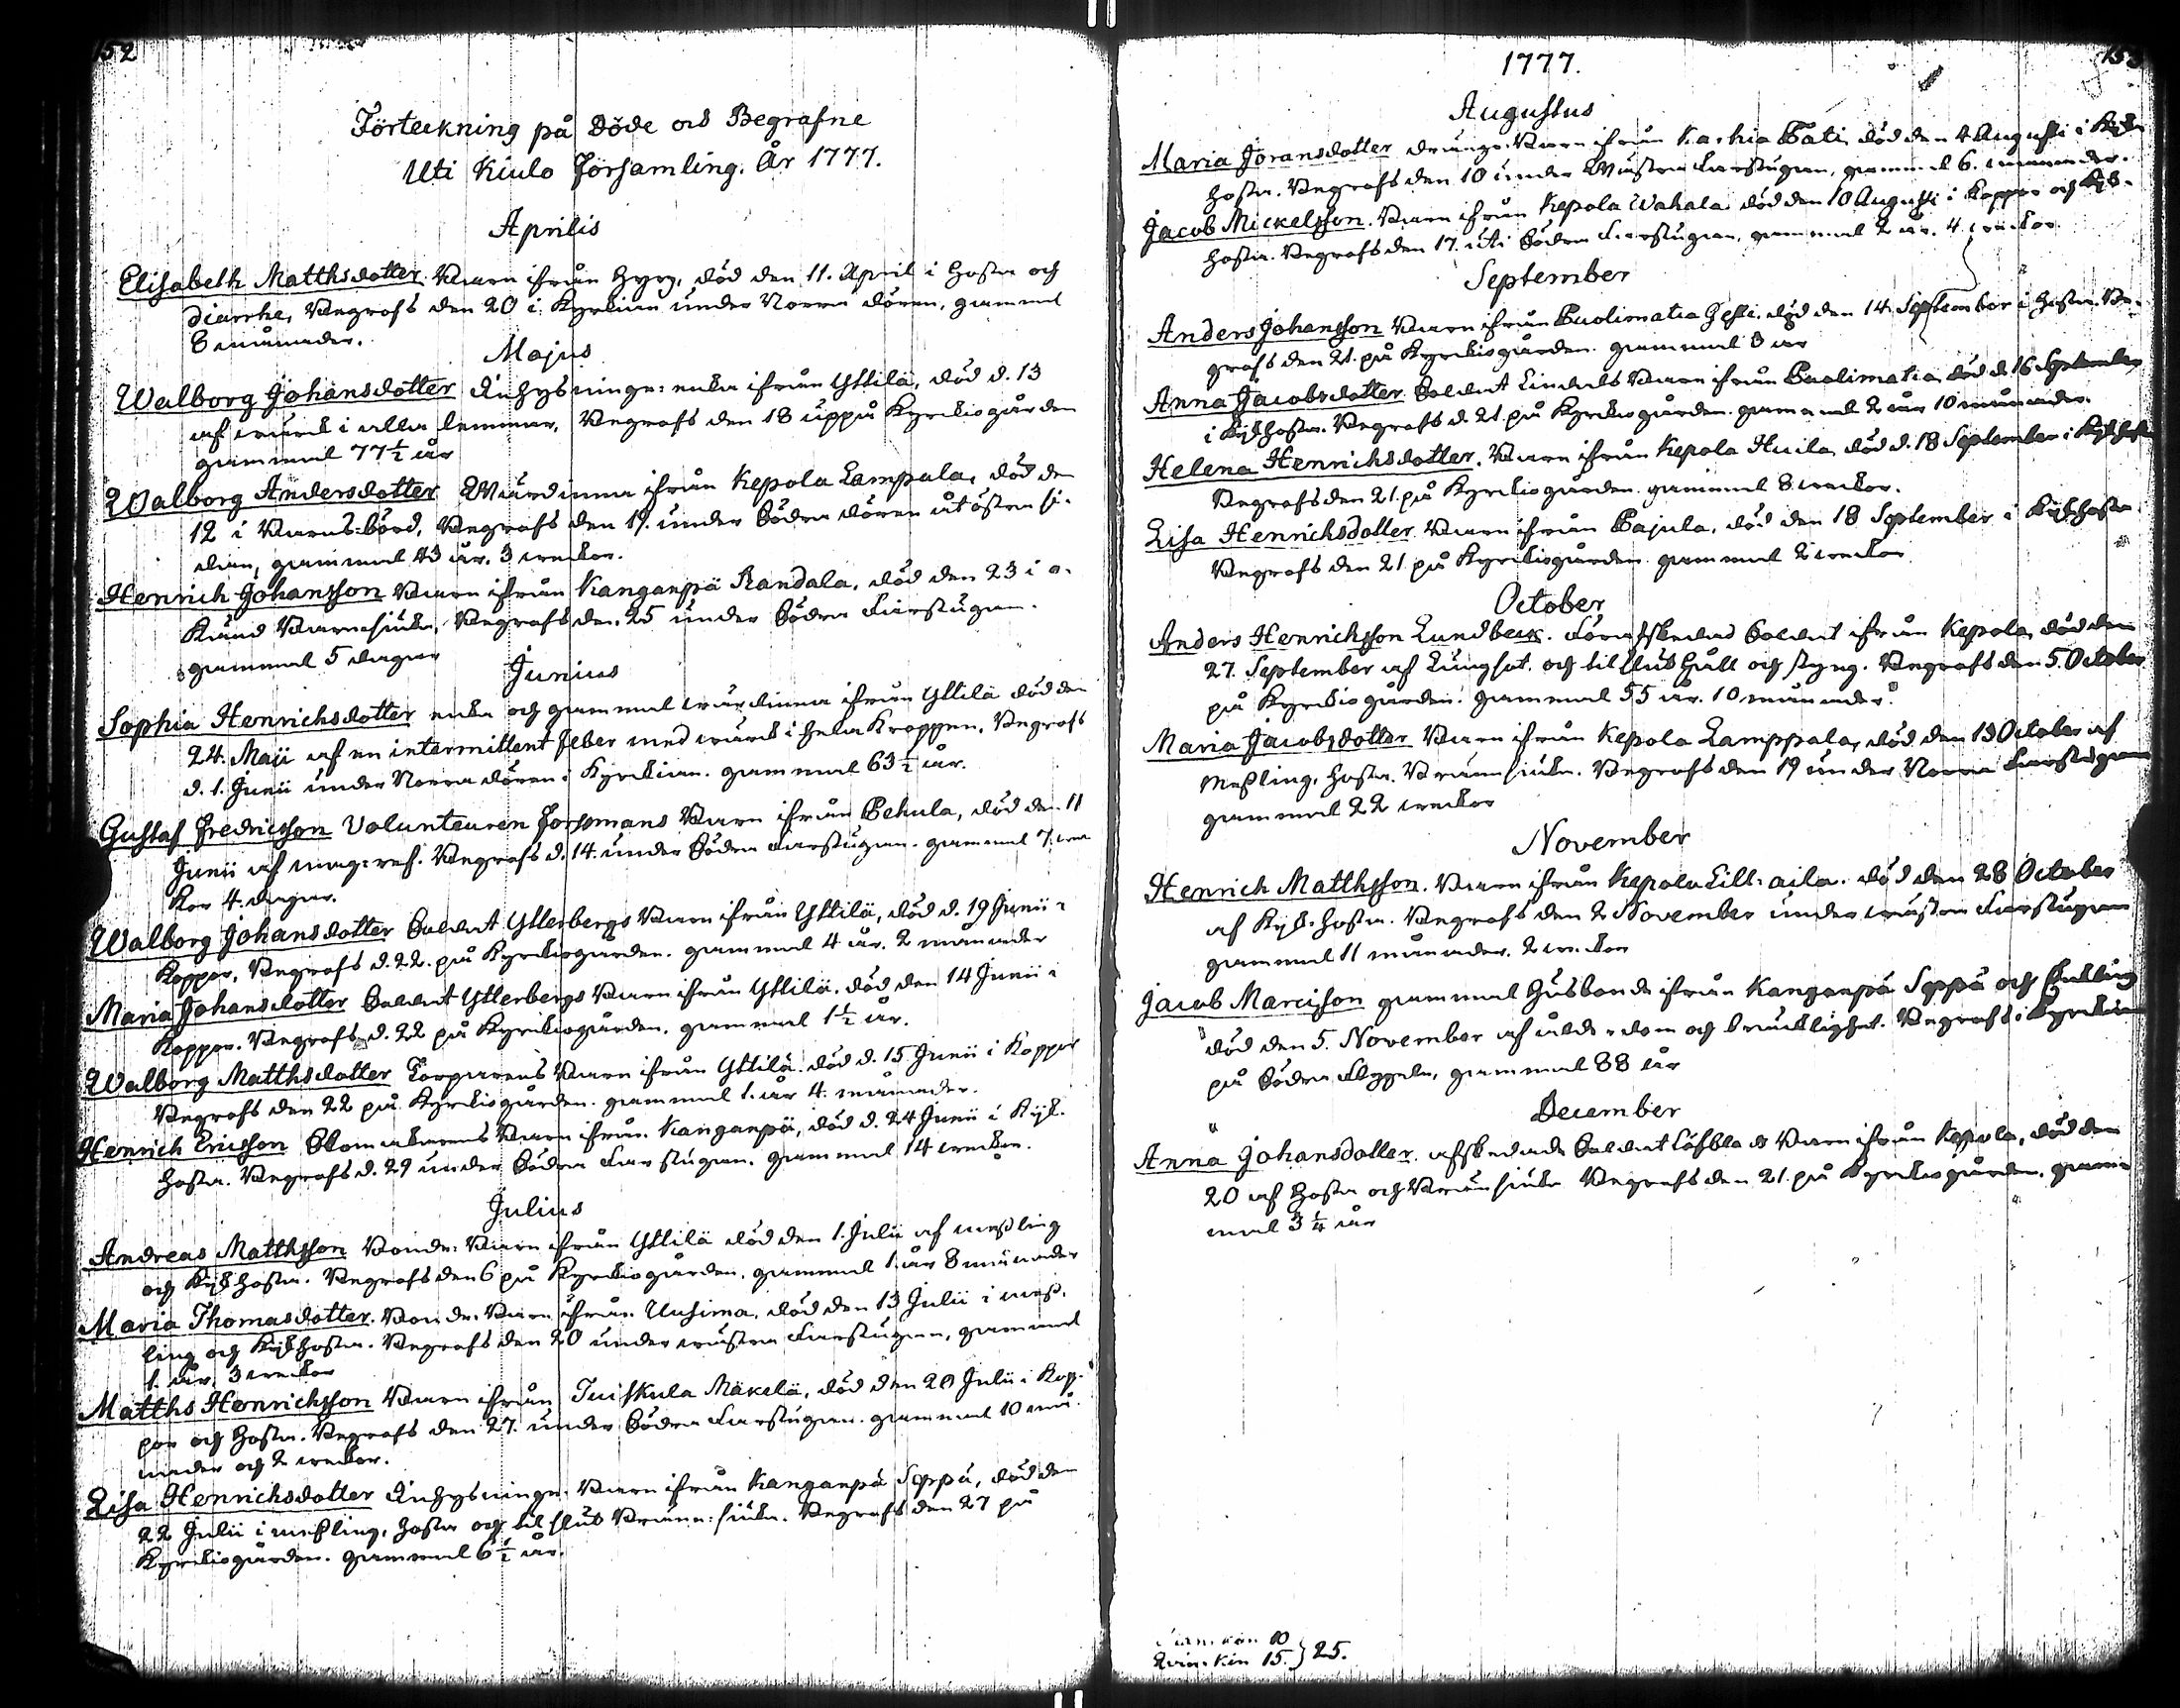 152
Förteckning på döde och Begrafne
Uti Kiulo Församling. År 1777.
Aprilis
Elisabeth Matthsdotter. Barn ifrån Hyrÿ, död den 11. April i hosta och
diarrhe, Begrofs den 20 i Kyrkian under Norra dören, gammal
8 månader.
Majus
Walborg Johansdotter Inhyses enka ifrån Yttilä, död d. 13
af wärck i alla lemmar, Begrofs den 18 uppå Kyrkiogården
gammal 77 1/2 år
Walborg Andersdotter Wärdinna ifrån Kepola Lampala, död den
12 i Barns-börd, Begrofs den 19. under Södra dören åt östra si-
dan, gammal 43 år. 3 weckor.
Henrich Johansson Barn ifrån Kanganpä Randala, död den 23 i o-
känd Barnasiuka, Begrofs den 25 under Södra Farstugan.
gammal 5 dagar
Junius
Sophia Henrichsdotter enka och gammal wärdinna ifrån Yttilä död den
24. Maji af en intermittent feber med wärck i hela Kroppen. Begrofs
d. 1. Junii under Norra dören i Kyrkian. gammal 63 1/2 år.
Gustaf Fredricsson Volunteuren Forsmans Barn ifrån Pehula, död den 11
Junii af mag-ref. Begrofs d. 14. under Södra Farstugan. gammal 7. wec
kor 4. dagar.
Walborg Johansdotter Soldat Ytterbergs Barn ifrån Yttilä, död d. 19 Junii i
Koppor, Begrofs d. 22. på Kyrkiogården. gammal 4 år. 2 månader
Maria Johansdotter Soldat Ytterbergs Barn ifrån Yttilä. död den 14 Junii i
Koppor. Begrofs d. 22 på Kyrkiogården. gammal 1 1/2 år.
Walborg Matthsdotter Torparens Barn ifrån Yttilä. död d. 15 Junii i Koppor
Begrofs den 22 på Kyrkiogården. gammal 1. år 4. månader.
Henrich Ericsson Skomakarens Barn ifrån Kanganpä, död d. 24 Junii i Kik-
hosta. Begrofs d. 29 under Södra Farstugan. gammal 14 weckor.
Julius
Andreas Matthsson Bonde-Barn ifrån Yttilä död den 1. Julii af meßling
och Kikhosta. Begrofs den 6 på Kyrkiogården. gammal 1. år 8 månader
Maria Thomasdotter. Bonde-Barn ifrån Uusima, död den 13 Julii i meß-
ling och Kikhosta. Begrofs den 20 under wästra Farstugan, gammal
1. år. 3 weckor
Matths Henrichsson Barn ifrån Tuiskula Mäkelä, död den 20 Julii i Kop-
por och hosta. Begrofs den 27. under Södra Farstugan. gammal 10 må-
nader och 2 weckor.
Lisa Henrichsdotter Inhyses Barn ifrån Kanganpä Seppä, död den
22 Julii i meßling, hosta och til slut Bränsiuka. Begrofs den 27 på
Kyrkiogården. gammal 6 1/2 år.
1777.
153
Augustus
Maria Joransdotter drängs Barn ifrån Karhia Pati, död den 4 Augusti i Kik-
hosta. Begrofs den 10 under Wästra Farstugan, gammal 6. månader.
Jacob Mickelsson. Barn ifrån Kepola Wahala död den 10 Augusti i Koppor och Kik-
hosta. Begrofs den 17. uti Södra Farstugan, gammal 2 år. 4 weckor
September
Anders Johansson Barn ifrån Paolimatia död den 14. September i hosta. Be-
grofs den 21. på Kyrkiogården. gammal 3 år
Anna Jacobsdotter. Soldat Lindals Barn ifrån Paolimatia död d. 16 September
i Kikhosta. Begrofs d. 21 på Kyrkiogården. gammal 2 år 10 månader.
Helena Henrichsdotter. Barn ifrån Kepola Huila, död d. 18 September i Kikhosta
Begrofs den 21. på Kyrkiogården. gammal 8 weckor.
Lisa Henrichsdotter Barn ifrån Pajula, död den 18 September i Kikhosta
Begrofs den 21 på Kyrkiogården gammal 2 weckor
October
Anders Henrichsson Lundbeck. afskedad Soldat ifrån Kepola, död den
27. September af Lungsot. och til slut håll och styng. Begrofs den 5. October
på Kyrkiogården. gammal 55 år. 10 månader.
Maria Jacobsdotter Barn ifrån Kepola Lamppala, död den 13 October af
Meßling, hosta, Bränsiuka. Begrofs den 19 under Norra Farstugan
gammal 22 weckor
November
Henrich Matthsson. Barn ifrån Kepola Lill-aila. död den 28 October
af Kik-hosta. Begrofs den 2 November under wästra Farstugan
gammal 11 månader. 2 weckor
Jacob Marcisson gammal Husbonde ifrån Kanganpä Seppä och
död den 5. November af ålderdom och bräcklighet. Begrofs i Kyrkian
på Södra Flygeln, gammal 88 år
December
Anna Johansdotter. afskedade Soldat Löfblads Barn ifrån Kepola, död den
20 af hosta och Bränsiuka Begrofs den 21. på Kyrkiogården. gam-
mal 3 1/4 år
Mankön 10
Qvinkön 15. } 25.